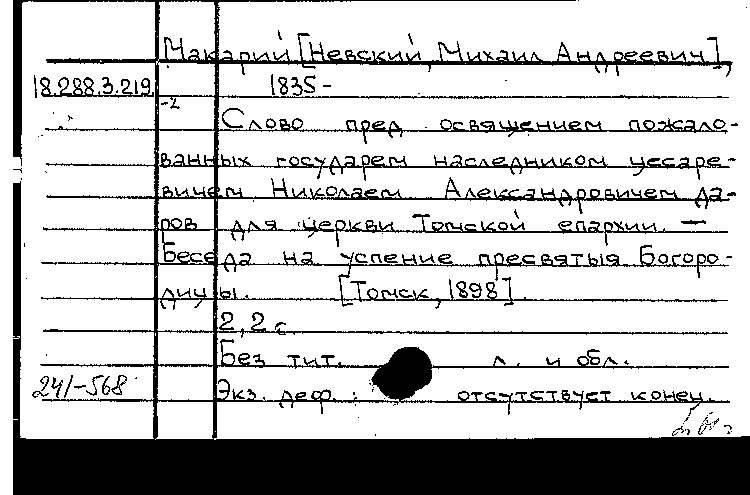 Макарий [Невский, Михаил Андреевич],
18.288.3.219 1835-
-2
Слово пред освящением пожало-
ванных государем наследником цесаре-
вичем Николаем Александровичем да-
ров для церкви Томской епархии. —
Беседа на успение пресвятыя Богоро-
дицы. [Томск, 1898].
2, 2 с.
Без тит. л. и обл.
241-568 Экз. деф.: отсутствует конец.